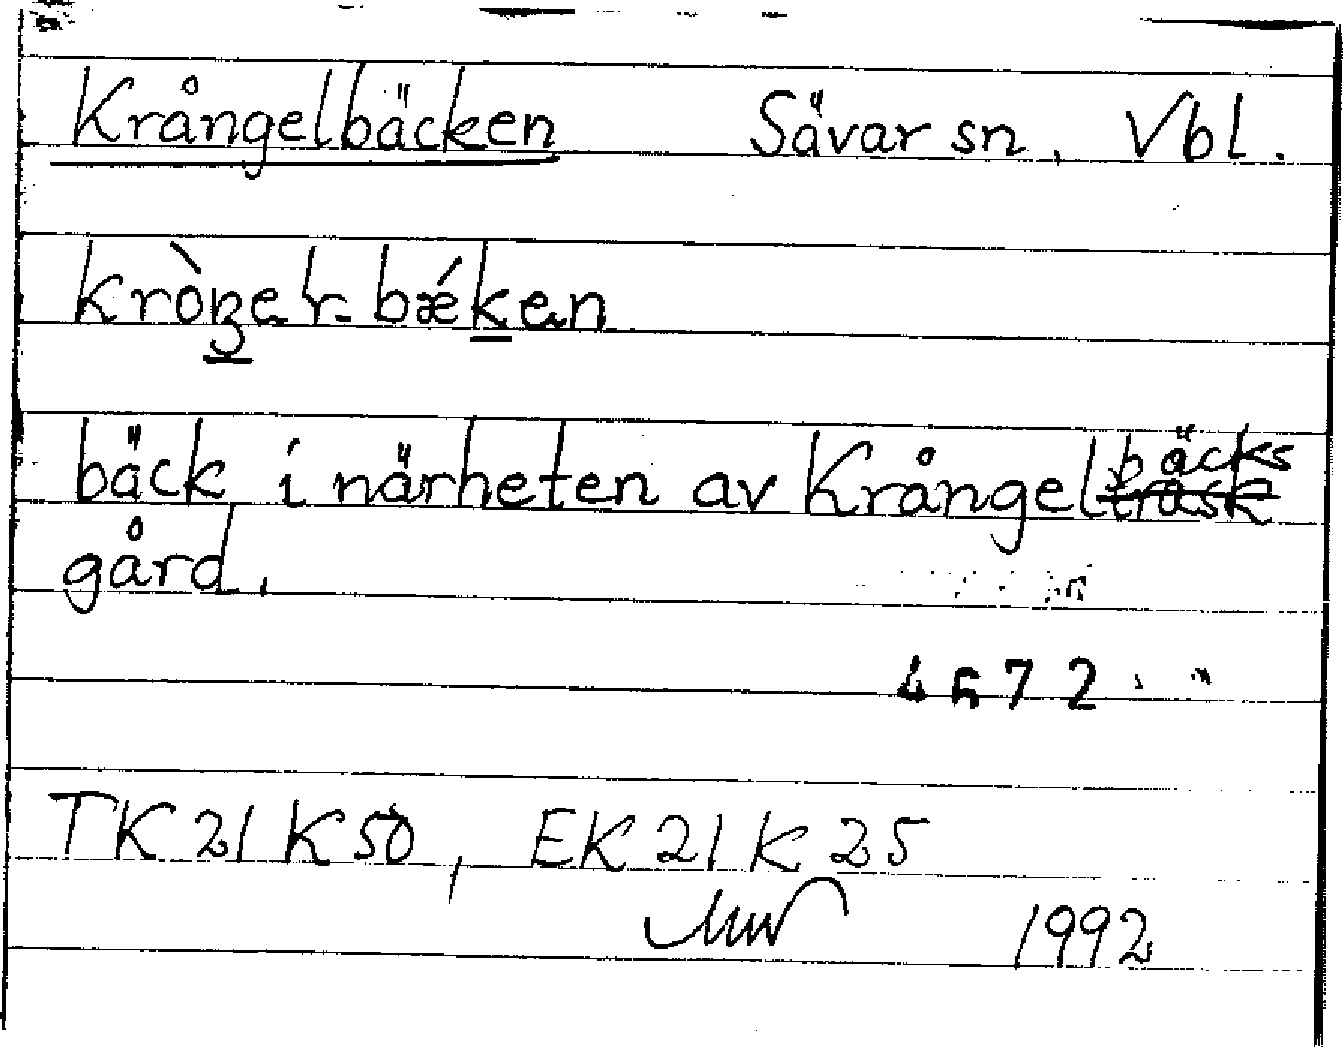 Krångelbäcken Sävar sn, Vbl.
bäck i närheten av Krångelbäcks
gård.
4572
TK 21 K 50, EK 21 K 25
1992